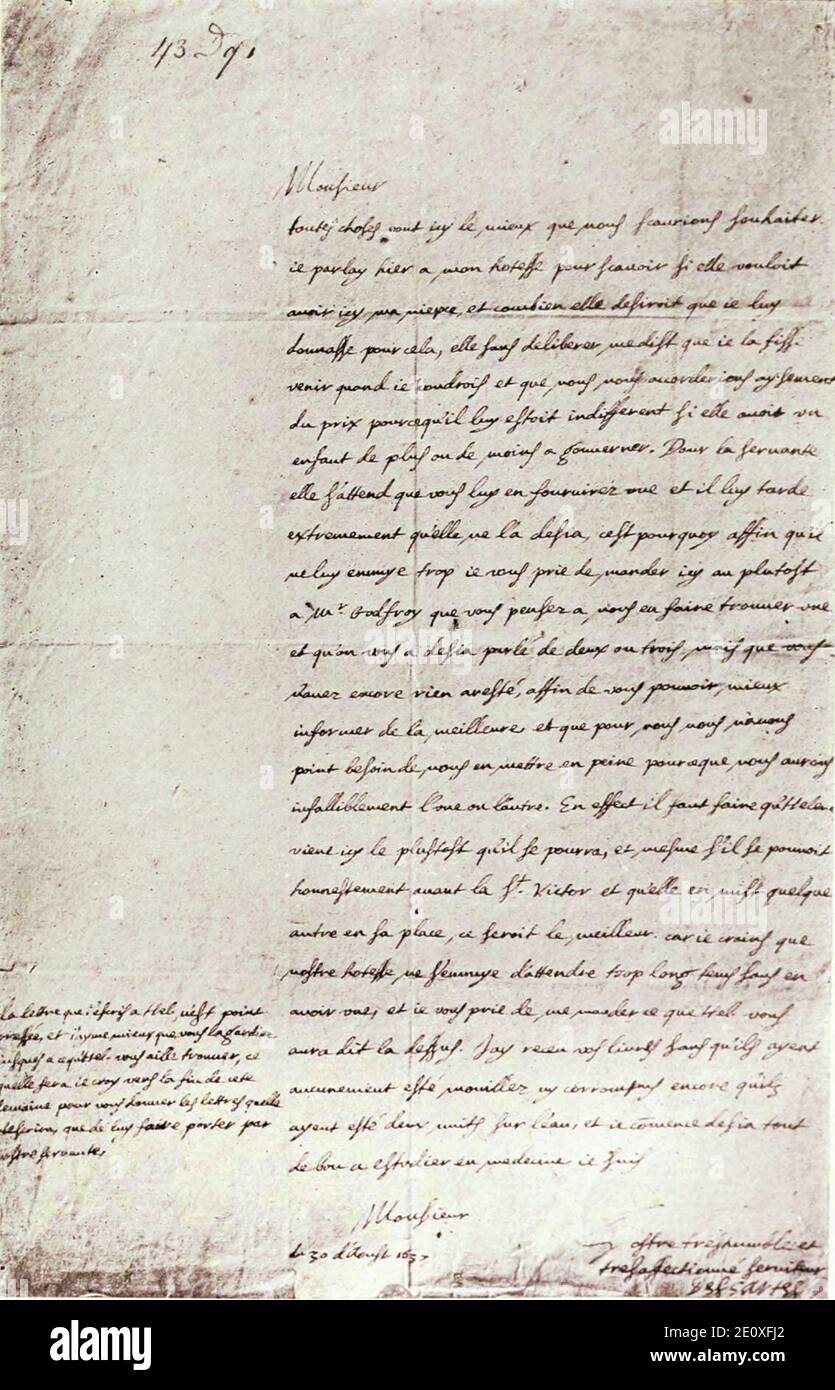 43
Monsieur
toutes choses vont icy le mieux que nous scaurions souhaiter.
ie parlay hier a mon hotesse pour scauoir si elle vouloit
auoir icy ma niepce, et combien elle desiroit que ie luy
donnasse pour cela, elle sans deliberer, me dist que ie la fisse
venir quand ie voudrois et que nous nous acorderions aysement
du prix pourcequ'il luy estoit indifferent si elle auoit un
enfant de plus ou de moins a gouuerner. Pour la seruante
elle s'attend que vous luy en fournirez une et il luy tarde
extremement qu'elle ne l'a desia, c'est pourquoy affin qu'il
ne luy ennuye trop ie vous prie de mander icy au plutost
a Mr Godfroy que vous pensez a nous en faire trouuer une
et qu'on vous a desia parlé de deux ou trois, mais que vous
n'auez encore rien aresté, affin de vous pouuoir mieux
informer de la meilleure, et que pour nous nous n'auons
point besoin de nous en mettre en peine pourceque nous aurons
infalliblement l'une ou l'autre. En effect il faut faire qu'Helene
vient icy le plustost qu'il se pourra, et mesme s'il se pouuoit
honnestement auant la St. Victor et qu'elle en mist quelque
autre en sa place, ce seroit le meilleur. car ie crains que
nostre hotesse ne s'ennuye d'attendre trop long tems sans en
auoir une, et ie vous prie de me mander ce que Hel. vous
aura dit la dessus. J'ay receu vos liures sans qu'ils ayent
aucunement esté mouillez ny corrompus encore qu'ilz
ayent esté deux nuits sur l'eau, et ie cōmence desia tout
de bon a estudier en medecine ie suis
Monsieur
du 30 d'Aoust 1637
Vostre tres humble et
tres affectionné seruiteur
Descartes
la lettre que i'escris a Hel. n'est point
pressée, et i'ayme mieux que vous la gardiez
iusques a ce qu'Hel. vous aille trouuer, ce
quelle fera ie croy vers la fin de cete
semaine pour vous donner les lettres quelle
m'escrira, que de luy faire porter par
vostre seruante,
alamy
alamy
alamy
Image ID: 2E0XFJ2
www.alamy.com